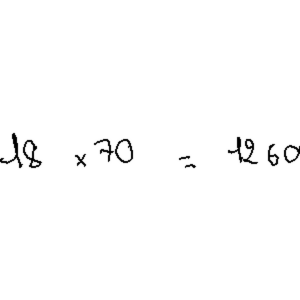 18 × 70 = 1260